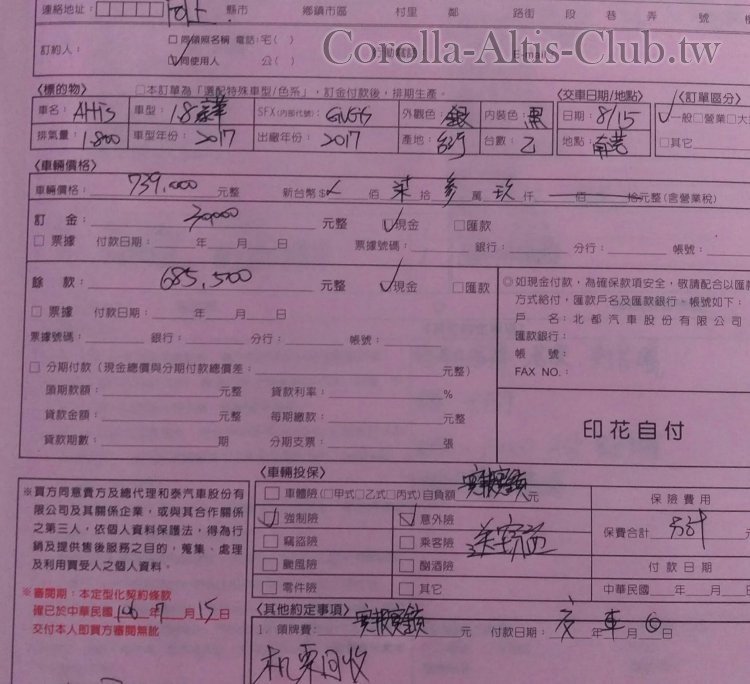 Corolla-Altis-Club.tw
連絡地址： 同上 縣市 鄉鎮市區 村里 鄰 路街 段 巷 弄 號
訂約人： □同領照名稱 電話：宅( ) 行動電話 E-mail
同使用人 公( )
〈標的物〉 □本訂單為「選配特殊車型/色系」，訂金付款後，排期生產。 〈交車日期/地點〉 〈訂單區分〉
車名： Altis 車型： 1.8 SFX(內部代號)： 外觀色 銀 內裝色 黑 日期： 8/15 一般□營業□大
排氣量： 1,800 車型年份： 2017 出廠年份： 2017 產地： 台數： 乙 地點： □其它
〈車輛價格〉
車輛價格： 739,000 元整 新台幣$ 佰 柒 拾 參 萬 玖 仟 佰 拾元整(含營業稅)
訂 金： 30,000 元整 現金 □匯款
□票據 付款日期： 年 月 日 票據號碼： 銀行： 分行： 帳號：
餘 款： 685,500 元整 現金 □匯款
□票據 付款日期： 年 月 日
票據號碼： 銀行： 分行： 帳號：
□分期付款(現金總價與分期付款總價差： 元整)
頭期款額： 元整 貸款利率： %
貸款金額： 元整 每期繳款： 元整
貸款期數： 期 分期支票： 張
◎如現金付款，為確保款項安全，敬請配合以匯款
方式給付，匯款戶名及匯款銀行、帳號如下：
戶 名：北都汽車股份有限公司
匯款銀行：
帳 號：
FAX NO.：
印花自付
※買方同意貴方及總代理和泰汽車股份有
限公司及其關係企業，或與其合作關係
之第三人，依個人資料保護法，得為行
銷及提供售後服務之目的，蒐集、處理
及利用買受人之個人資料。
※審閱期：本定型化契約條款
確已於中華民國 106 年 7 月 15 日
交付本人即買方審閱無訛
〈車輛投保〉
□車體險(□甲式□乙式□丙式)自負額 實報實銷 元
強制險 意外險
□竊盜險 □乘客險
□颱風險 □酗酒險
□零件險 □其它
保險費用
保費合計 元
付款日期
中華民國 年 月 日
〈其他約定事項〉
1. 領牌費： 實報實銷 元 付款日期： 交 年 車 月 日
机票回收